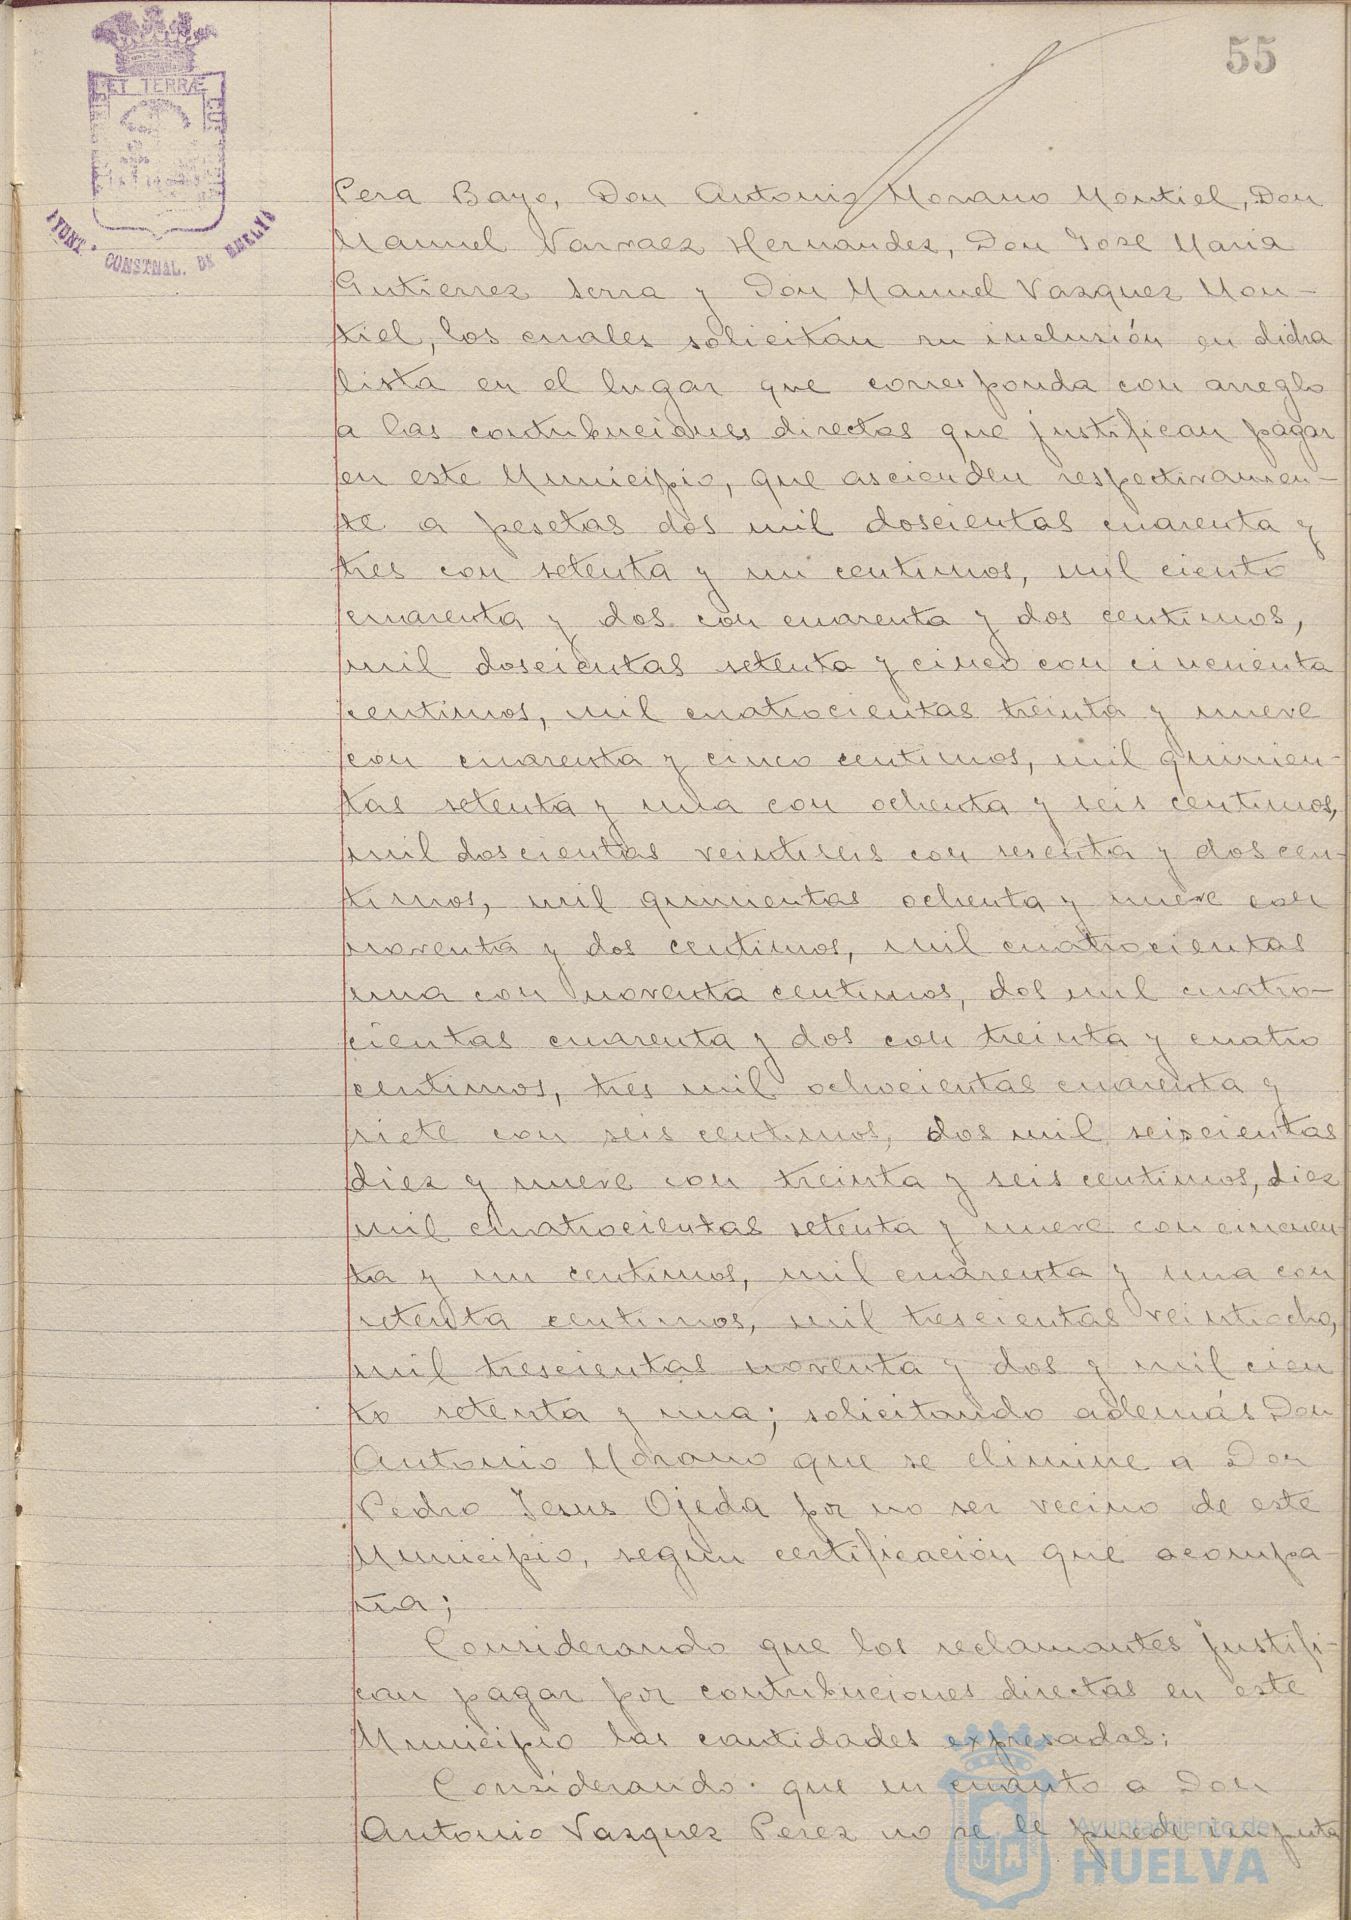 55
ET TERRÆ
AYUNT. CONSTNAL. DE HUELVA
Pera Bayo, Don Antonio Morano Montiel, Don
Manuel Narvaez Hernandez, Don Jose Maria
Gutierrez Serra y Don Manuel Vazquez Mon-
tiel, los cuales solicitan su inclusión en dicha
lista en el lugar que corresponda con arreglo
a las contribuciones directas que justifican pagar
en este Municipio, que ascienden respectivamen-
te a pesetas dos mil doscientas cuarenta y
tres con setenta y un centimos, mil ciento
cuarenta y dos con cuarenta y dos centimos,
mil doscientas setenta y cinco con cincuenta
centimos, mil cuatrocientas treinta y nueve
con cuarenta y cinco centimos, mil quinien-
tas setenta y una con ochenta y seis centimos,
mil doscientas veintiseis con sesenta y dos cen-
timos, mil quinientas ochenta y nueve con
noventa y dos centimos, mil cuatrocientas
una con noventa centimos, dos mil cuatro-
cientas cuarenta y dos con treinta y cuatro
centimos, tres mil ochocientas cuarenta y
siete con seis centimos, dos mil seiscientas
diez y nueve con treinta y seis centimos, diez
mil cuatrocientas setenta y nueve con cincuen-
ta y un centimos, mil cuarenta y una con
setenta centimos, mil trescientas veintiocho,
mil trescientas noventa y dos y mil cien
to setenta y una; solicitando además Don
Antonio Morano que se elimine a Don
Pedro Jesus Ojeda por no ser vecino de este
Municipio, segun certificación que acompa-
ña;
Considerando que los reclamantes justifi-
can pagar por contribuciones directas en este
Municipio las cantidades expresadas;
Considerando que en cuanto a Don
Antonio Vazquez Perez no se le puede imputa
Ayuntamiento de
HUELVA